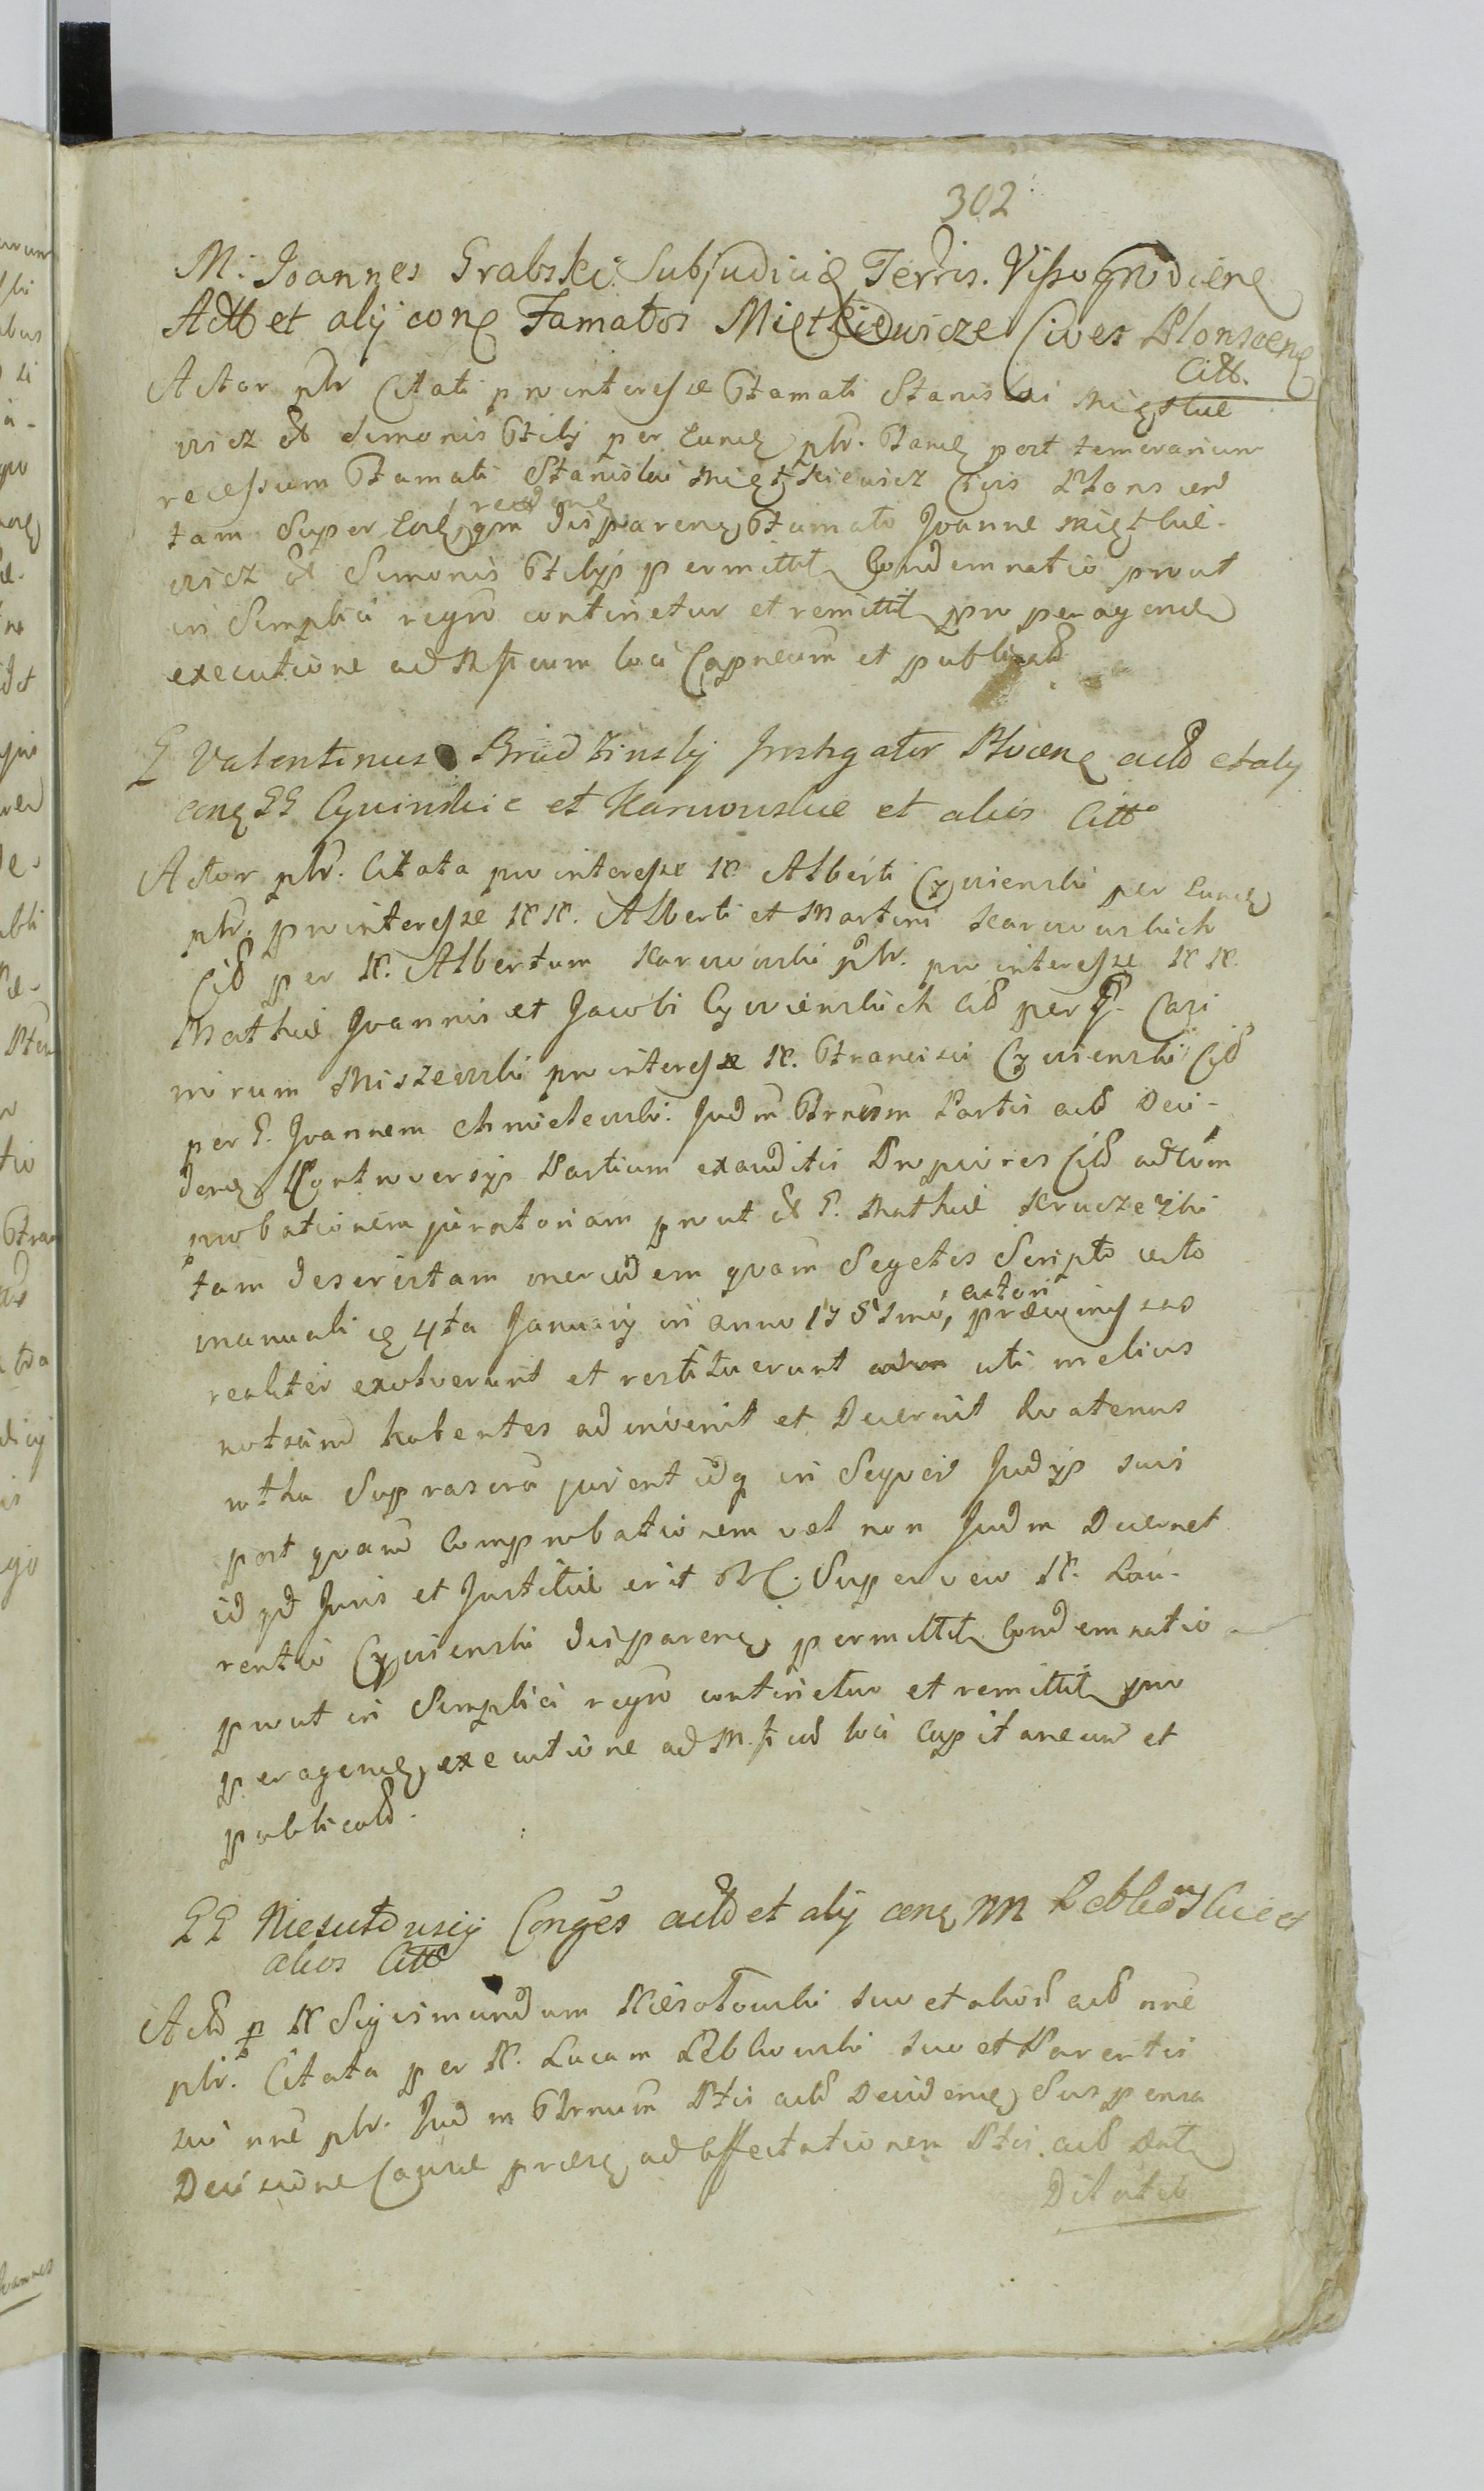 302
M. Joannes Grabski Subjudicię Terris. Vissogrodienę
Actt et alij conę Famatos Miętkiewicze Cives Plonscenę
Citt.
Actor plr Citati pro interesse Famati Stanislai Miętkie
wicz et Simonis Filij per Eundę plr. Tandę post temerarium
recessum Famati Stanislai Miętkiewicz Civis Plonscen
tam Super Eodę, qm disparenę Famato Joanne Miętkie-
wicz et Simonis Filijs permittit Condemnatio prout
in Simplici regro continetur et remittit pro peragendę
executione ad Mfícum loci Capneum et publicatd
G Valentinus Brudzinsky Instigator Plocenę actd et alij
conę GG Cywinskie et Karwowskie et alios Citto
Actor plr. Citata pro interesse N Alberti Cywienski per Eundę
plr. pro interesse NN. Alberti et Martini Karwowskich
Citt per N. Albertum Karwowski plr. pro interesse NN.
Mathiæ Joannis et Jacobi Cywienskich Citt per G. Casi
mirum Miszewski pro interesse N. Francisci Cywienski Citt
per G. Joannem Chmielewski. Judm Frnum Partis actt Deci-
denę Controversijs Partium exauditis Propiores Citt ad Com
probationem juratoriam prout et G. Mathiæ Kruczeński
tam deservitam mercedem quam Segetes Scripto certo
manuali 4ta January in anno 1751mo, actori
realiter exolverunt et restituerunt uti melius
notitiam habentes adinvenit et Decernit Quatenus
Suprascra jurent idq in Sequen Judijs suis
post quam Comprobationem vel non Judm Decernet
id qd Juris et Justitiæ erit Super vero N. Lau-
rentio Cywienski disparenę permittit Condemnatio
prout in Simplici regro continetur et remittit pro
peragendę executione ad M.ficum loci Capitaneum et
publicatd.
GG Niesułowscy Conges actd et alij conę NN Lebkowskie et
alios Citto
Actd p N Sigismundum Niesołowski suo et aliors actt nne
plr. Citata per N. Lucam Lebkowski suo et Parentis
sui nne plr. Judm Frnum Ptis actt Decidenę Suspensa
Decisione Causæ præsę ad affectationem Ptis actt Datę
Dilatio